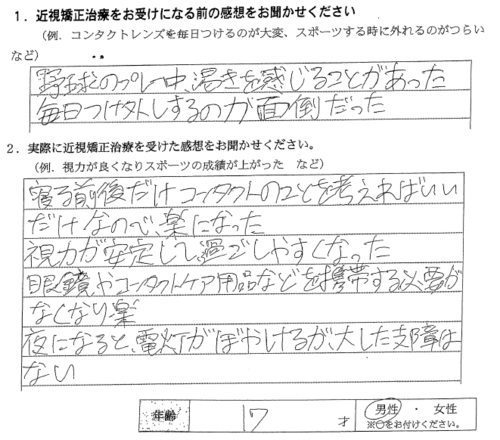 1．近視矯正治療をお受けになる前の感想をお聞かせください
（例．コンタクトレンズを毎日つけるのが大変、スポーツする時に外れるのがつらい
など）
野球のプレー中、渇きを感じることがあった
毎日つけ外しするのが面倒だった
2．実際に近視矯正治療を受けた感想をお聞かせください。
（例．視力が良くなりスポーツの成績が上がった　など）
寝る前後だけコンタクトのことを考えればいい
だけなので、楽になった
視力が安定し、過ごしやすくなった
眼鏡やコンタクトケア用品などを携帯する必要が
なくなり楽
夜になると、電灯がぼやけるが、大した支障は
ない
年齢　17　才　男性　・　女性
※○をお付けください。